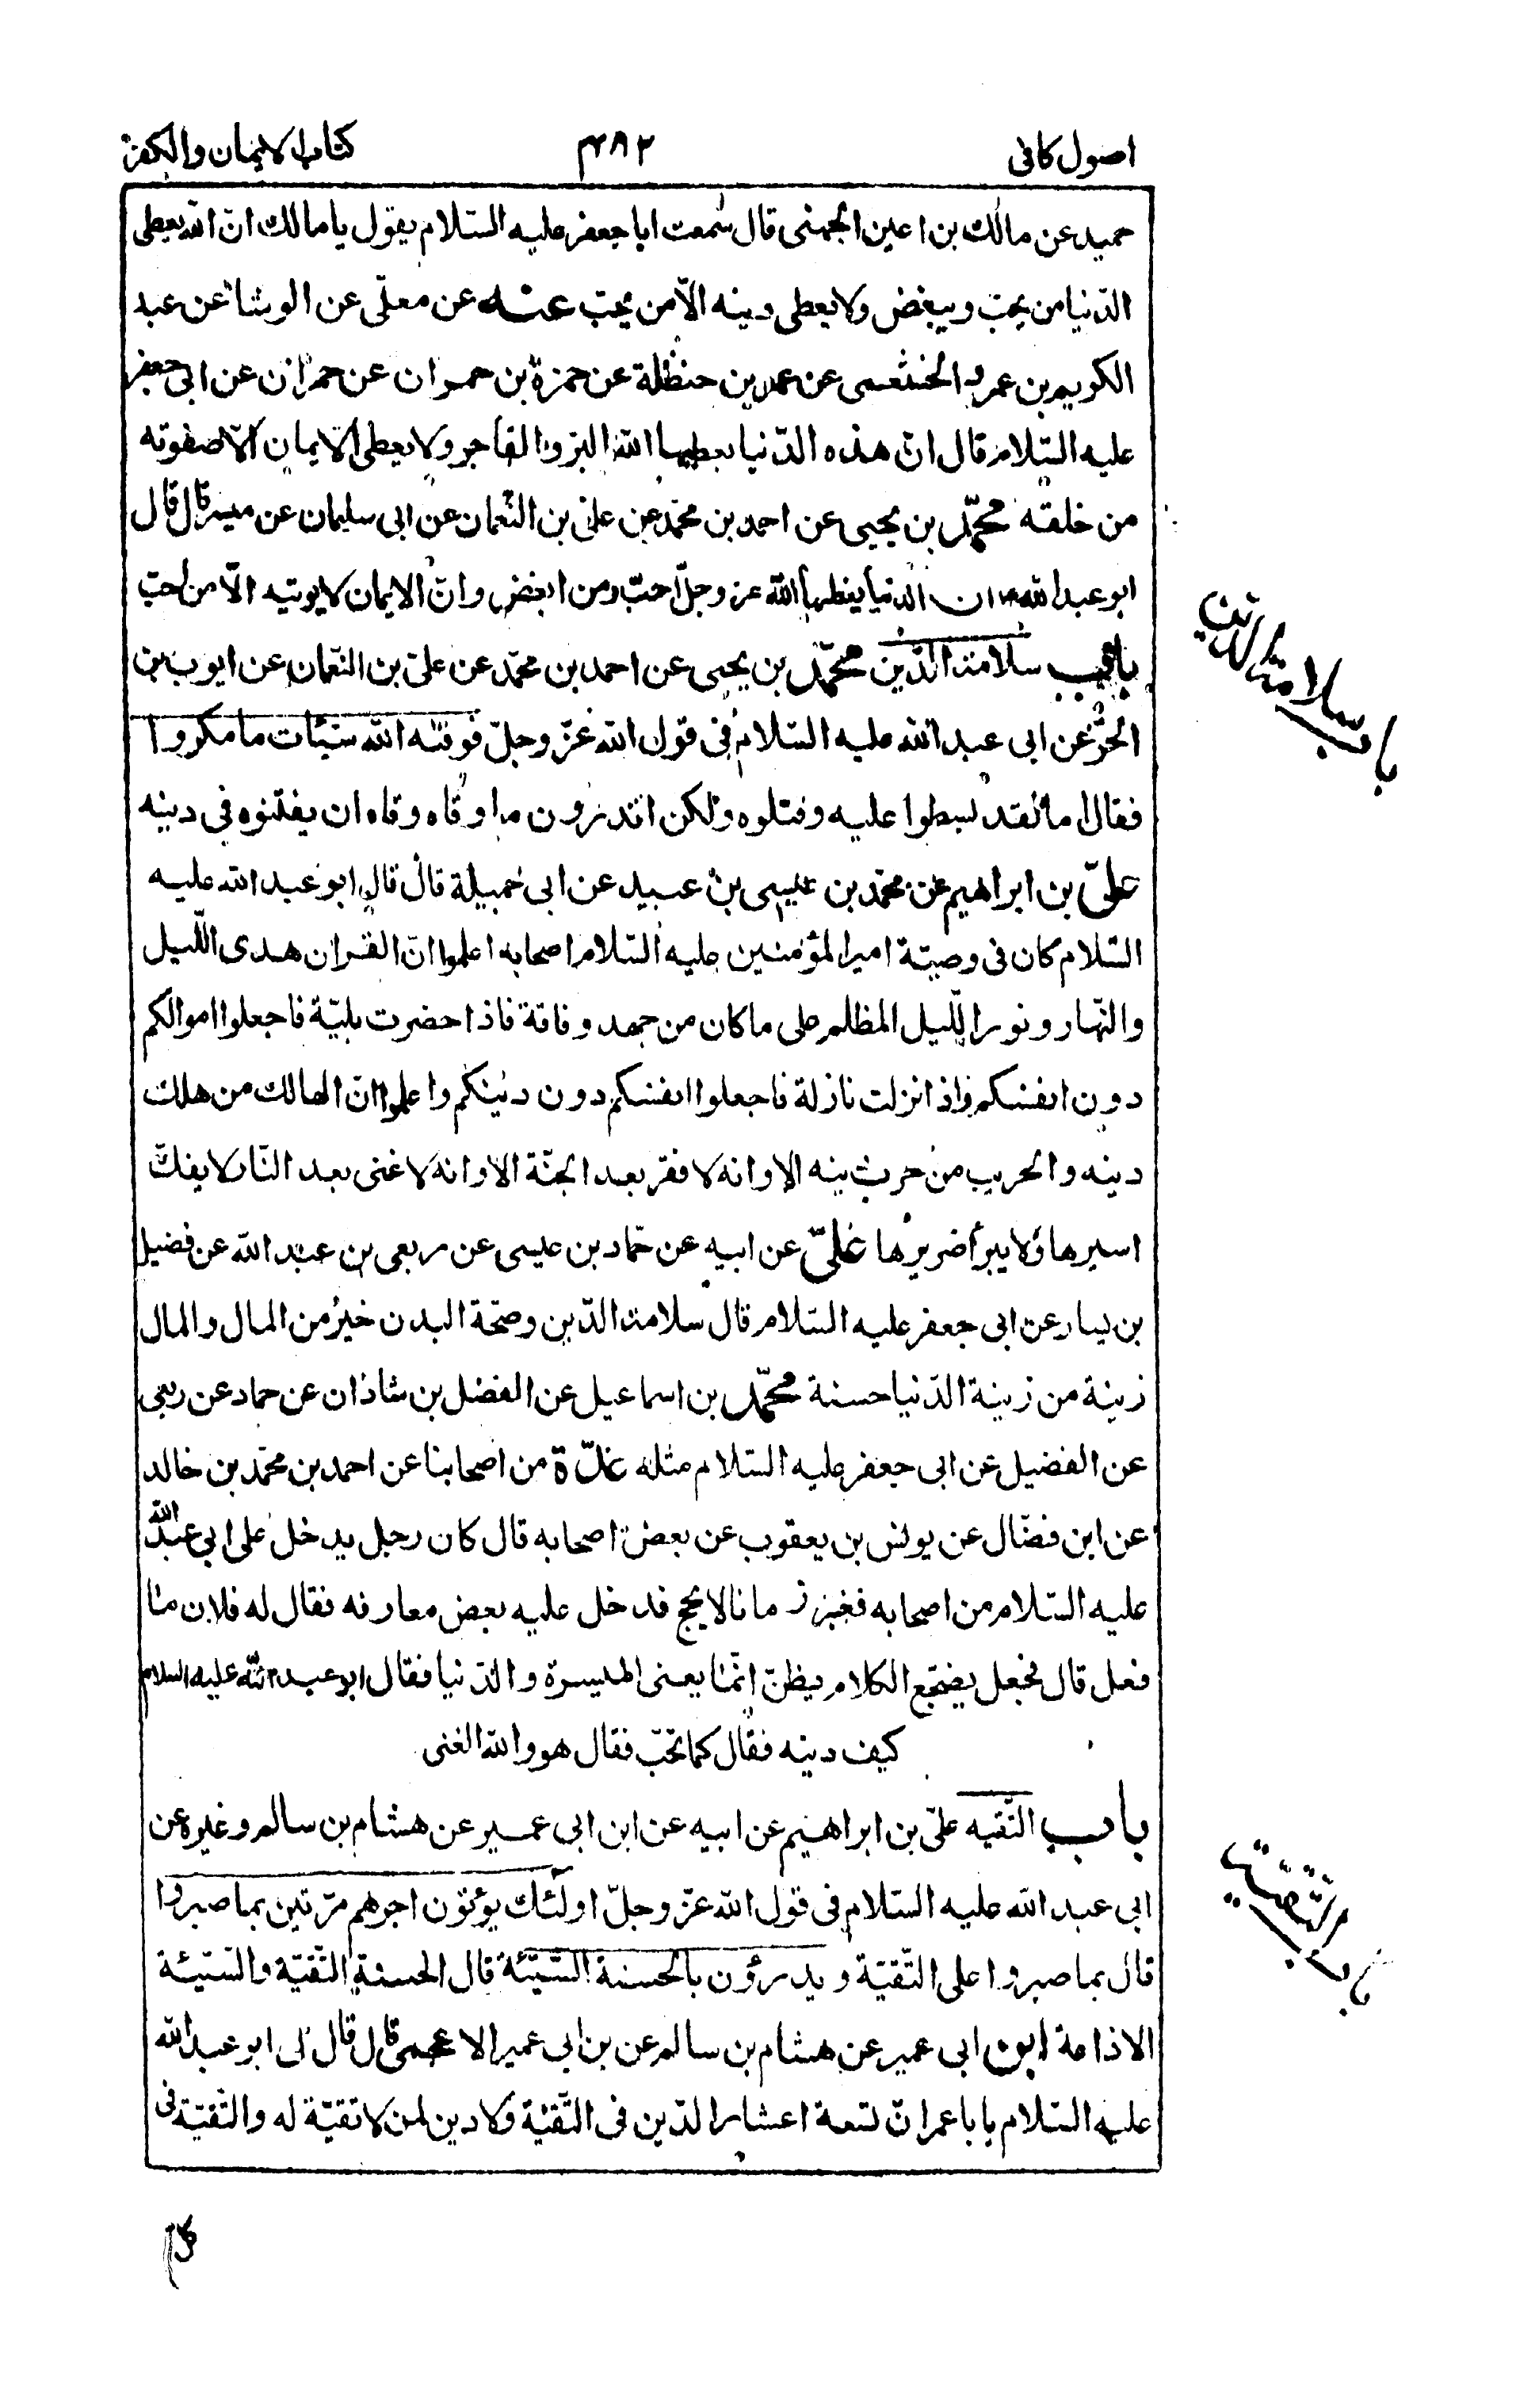 اصول كافى ٤٨٢ كتاب الايمان والكفر
حميد عن مالك بن اعين الجهنى قال سمعت ابا جعفر عليه السّلام يقول يا مالك انّ الله يعطى
الدّنيا من يحبّ ويبغض ولا يعطى دينه الّا من يحبّ عنه عن معلّى عن الوشا عن عبد
الكريم بن عمرو الخثعمى عن عمر بن حنظلة عن حمزة بن حمران عن حمران عن ابى جعفر
عليه السّلام قال انّ هذه الدّنيا يعطيها الله البرّ والفاجر ولا يعطى الايمان الّا صفوته
من خلقه محمّد بن يحيى عن احمد بن محمّد عن علىّ بن النّعمان عن ابى سليمان عن ميسر قال قال
ابو عبد الله ان الدنيا يعطيها الله عز وجلّ احبّ ومن ابغض وانّ الايمان لا يوتيه الّا من احبّ
باب سلامة الدّين محمّد بن يحيى عن احمد بن محمّد عن علىّ بن النّعمان عن ايوب بن
الحرّ عن ابى عبد الله عليه السّلام فى قول الله عزّ وجلّ فوقيه الله سيّئات ما مكروا
فقال اما لقد بسطوا عليه وقتلوه ولكن اتدرون ما وقاه وقاه ان يفتنوه فى دينه
علىّ بن ابراهيم عن محمّد بن عيسى بن عبيد عن ابى جميلة قال قال ابو عبد الله عليه
السّلام كان فى وصيّة امير المؤمنين عليه السّلام اصحابه اعلموا انّ القران هدى اللّيل
والنّهار ونور اللّيل المظلم على ما كان من جهد وفاقة فاذا حضرت بليّة فاجعلوا اموالكم
دون انفسكم واذا نزلت نازلة فاجعلوا انفسكم دون دينكم واعلموا انّ الهالك من هلك
دينه والحريب من حرب دينه الا وانه لا فقر بعد الجنّة الا وانه لا غنى بعد النّار لا يفكّ
اسيرها ولا يبرأ ضريرها علىّ عن ابيه عن حمّاد بن عيسى عن ربعى بن عبد الله عن فضيل
بن يسار عن ابى جعفر عليه السّلام قال سلامة الدّين وصحّة البدن خير من المال والمال
زينة من زينة الدّنيا حسنة محمّد بن اسماعيل عن الفضل بن شاذان عن حماد عن ربعى
عن الفضيل عن ابى جعفر عليه السّلام مثله عدّة من اصحابنا عن احمد بن محمّد بن خالد
عن ابن فضّال عن يونس بن يعقوب عن بعض اصحابه قال كان رجل يدخل على ابى عبد الله
عليه السّلام من اصحابه فغبر زمانا لا يحج فدخل عليه بعض معارفه فقال له فلان ما
فعل قال فجعل يضجّع الكلام يظنّ انّما يعنى الميسرة والدّنيا فقال ابو عبد الله عليه السلام
كيف دينه فقال كما تحبّ فقال هو والله الغنى
باب التّقيه علىّ بن ابراهيم عن ابيه عن ابن ابى عمير عن هشام بن سالم وغيره عن
ابى عبد الله عليه السّلام فى قول الله عزّ وجلّ اولئك يؤتون اجرهم مرّتين بما صبروا
قال بما صبروا على التّقيّة ويدرؤن بالحسنة السّيّئة قال الحسنة التّقيّة والسّيّئة
الاذاعة ابن ابى عمير عن هشام بن سالم عن بن ابى عمير الاعجمى قال قال لى ابو عبد الله
عليه السّلام يا با عمر انّ تسعة اعشار الدّين فى التّقيّة ولا دين لمن لا تقيّة له والتّقيّة فى
كل
باب سلامة الدين
باب التّقيّة